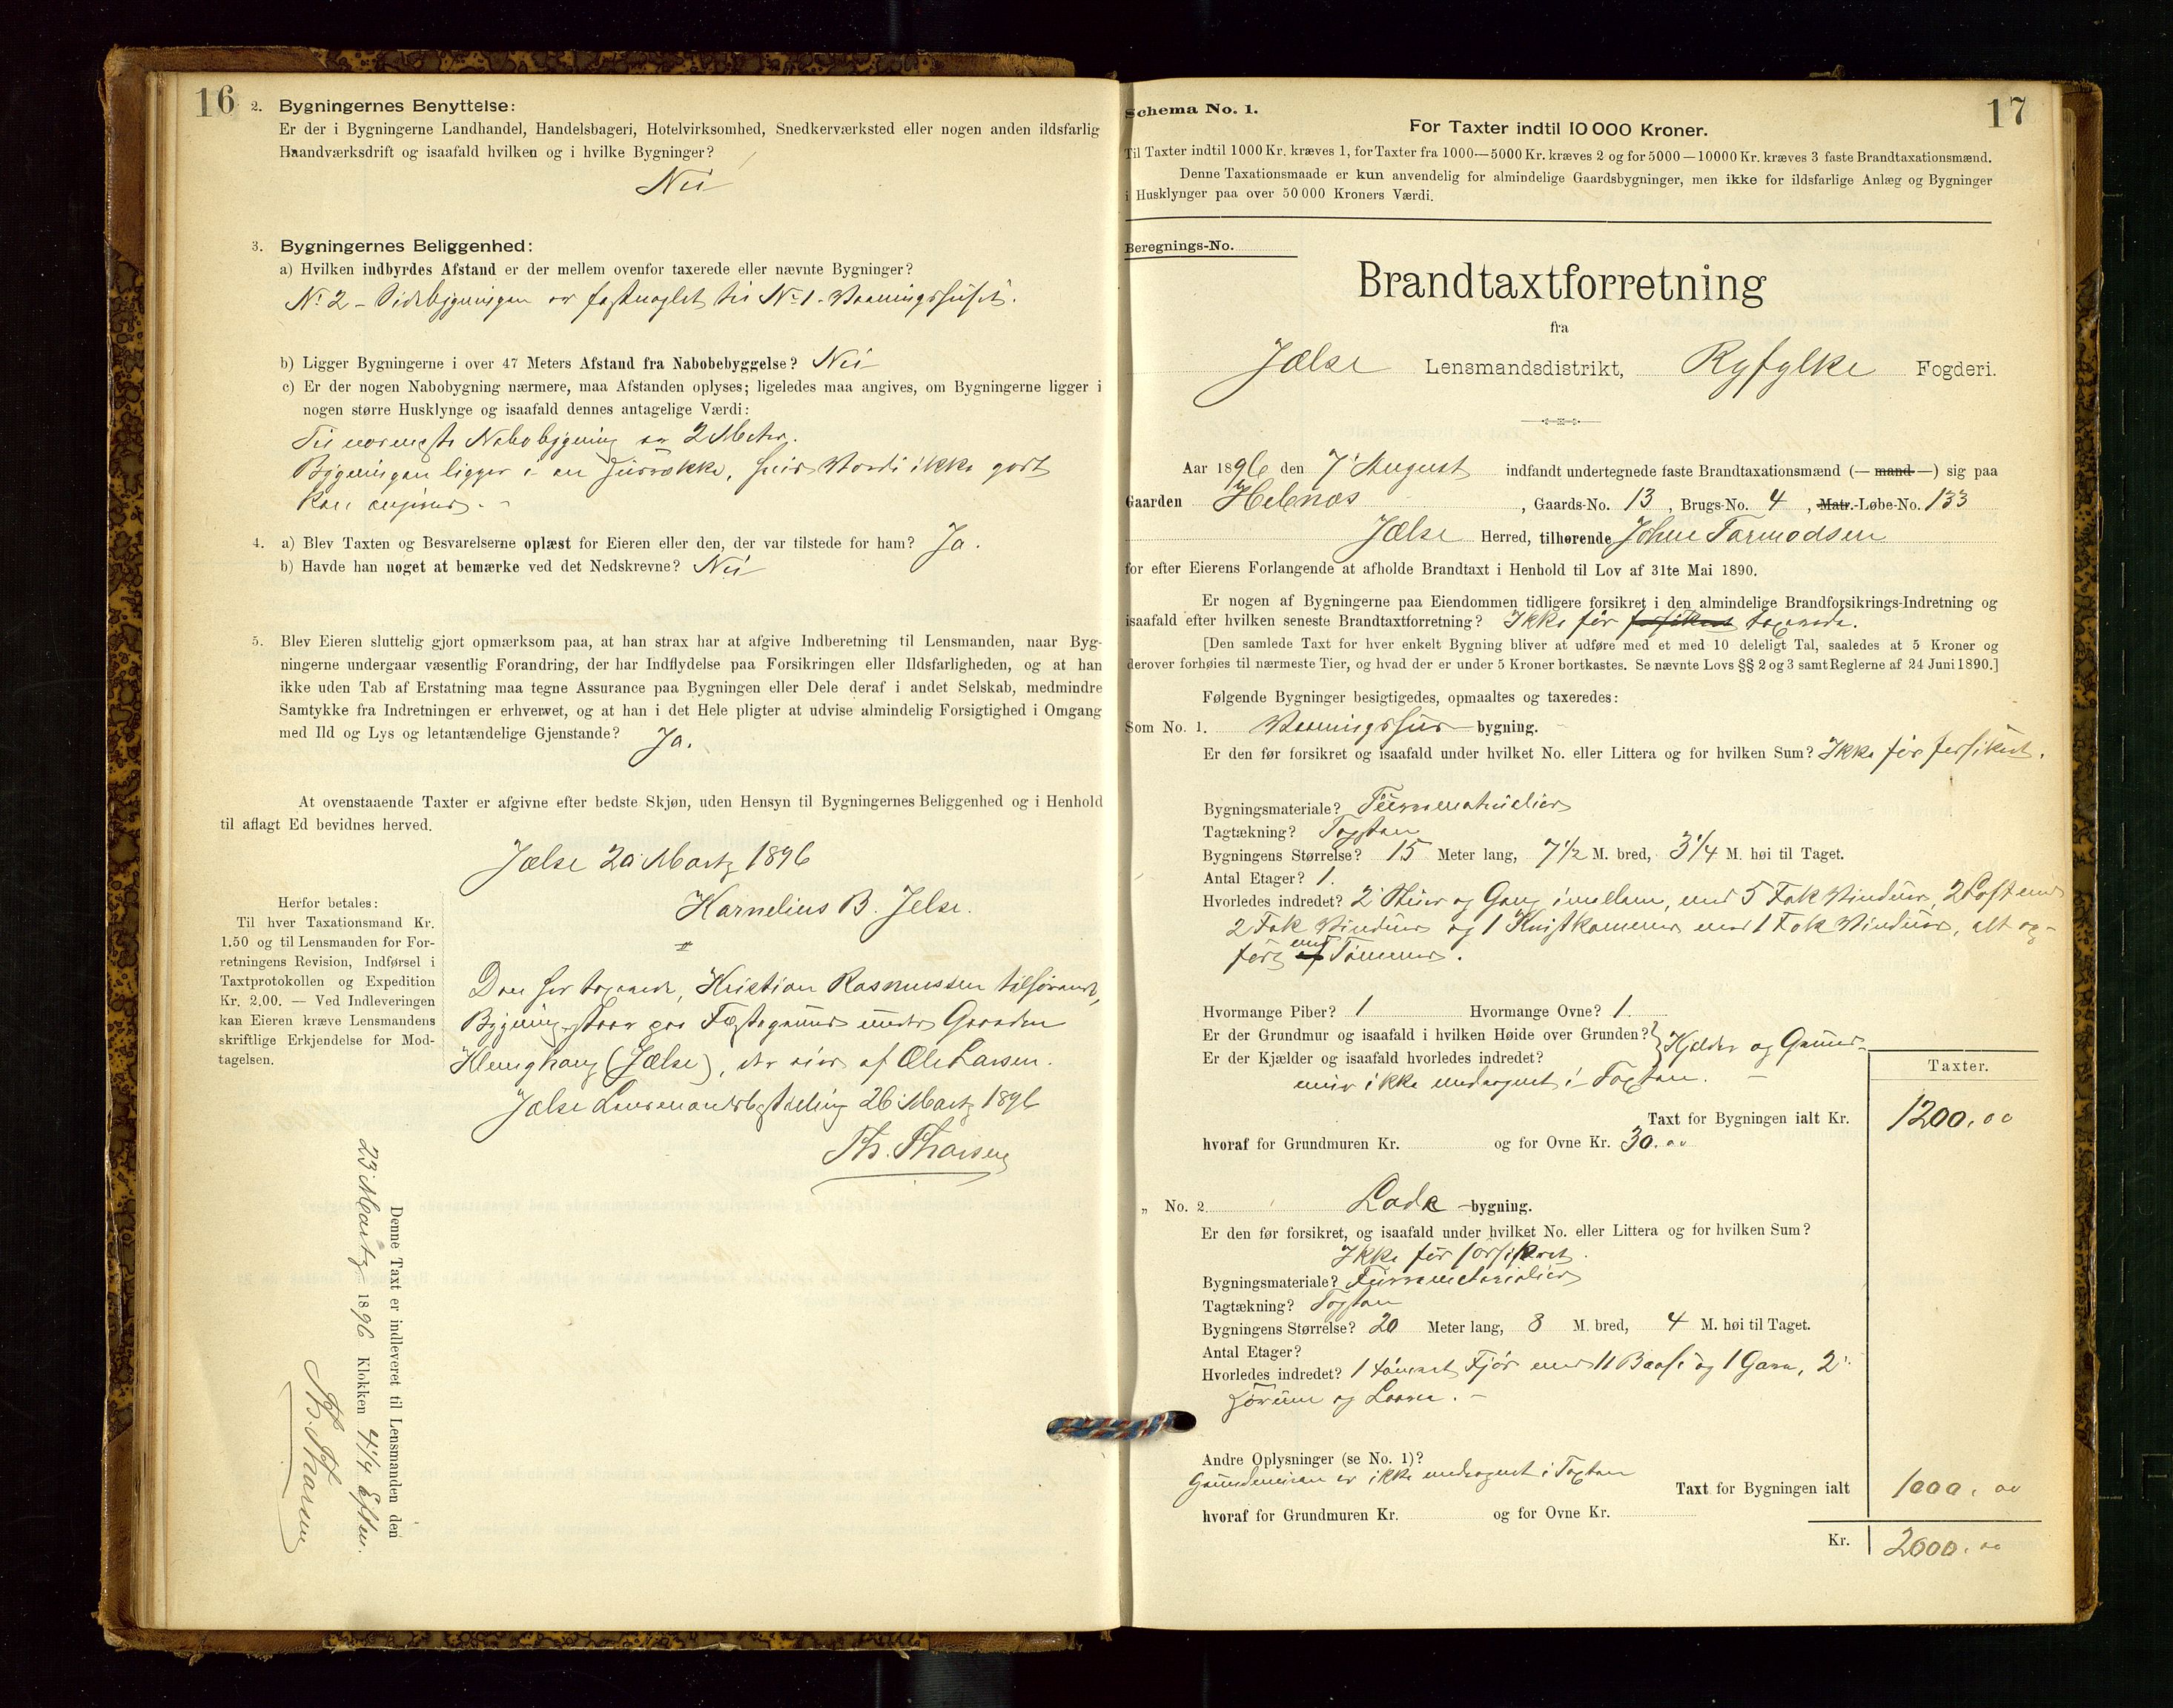 16
2. Bygningernes Benyttelse:
Er der i Bygningerne Landhandel, Handelsbageri, Hotelvirksomhed, Snedkerværksted eller nogen anden ildsfarlig
Haandværksdrift og isaafald hvilken og i hvilke Bygninger?
Nei
3. Bygningernes Beliggenhed:
a) Hvilken indbyrdes Afstand er der mellem ovenfor taxerede eller nævnte Bygninger?
No 2 - Sidebygningen er fastnaglet til No 1 - Vaaningshuset.
b) Ligger Bygningerne i over 47 Meters Afstand fra Nabobebyggelse? Nei
c) Er der nogen Nabobygning nærmere, maa Afstanden oplyses; ligeledes maa angives, om Bygningerne ligger i
nogen større Husklynge og isaafald dennes antagelige Værdi:
Til nærmeste Nabobygning er 2 Meter.
Bygningen ligger i en Husrække, hvis Værdi ikke godt
kan angives. -
4. a) Blev Taxten og Besvarelserne oplæst for Eieren eller den, der var tilstede for ham? Ja.
b) Havde han noget at bemærke ved det Nedskrevne? Nei
5. Blev Eieren sluttelig gjort opmærksom paa, at han strax har at afgive Indberetning til Lensmanden, naar Byg-
ningerne undergaar væsentlig Forandring, der har Indflydelse paa Forsikringen eller Ildsfarligheden, og at han
ikke uden Tab af Erstatning maa tegne Assurance paa Bygningen eller Dele deraf i andet Selskab, medmindre
Samtykke fra Indretningen er erhvervet, og at han i det Hele pligter at udvise almindelig Forsigtighed i Omgang
med Ild og Lys og letantændelige Gjenstande? Ja.
At ovenstaaende Taxter er afgivne efter bedste Skjøn, uden Hensyn til Bygningernes Beliggenhed og i Henhold
til aflagt Ed bevidnes herved.
Jælse 20 Martz 1896
Karnelius B. Jelse.
Herfor betales:
Til hver Taxationsmand Kr.
1.50 og til Lensmanden for For-
retningens Revision, Indførsel i
Taxtprotokollen og Expedition
Kr. 2.00. — Ved Indleveringen
kan Eieren kræve Lensmandens
skriftlige Erkjendelse for Mod-
tagelsen.
Den her taxerede, Kristian Rasmussen tilhørende,
Bygning staar paa Fæstegrund under Gaarden
(Jælse), der eies af Ole Larsen.
Jælse Lensmandsbestilling 26 Martz 1896
Th. Tharsen
Denne Taxt er indleveret til Lensmanden den
23 Martz 1896 Klokken 4 1/4 Efterm.
Th. Tharsen
17
Schema No. 1.
For Taxter indtil 10 000 Kroner.
Til Taxter indtil 1000 Kr. kræves 1, for Taxter fra 1000—5000 Kr. kræves 2 og for 5000—10000 Kr. kræves 3 faste Brandtaxationsmænd.
Denne Taxationsmaade er kun anvendelig for almindelige Gaardsbygninger, men ikke for ildsfarlige Anlæg og Bygninger
i Husklynger paa over 50 000 Kroners Værdi.
Beregnings-No.
Brandtaxtforretning
fra
Jælse Lensmandsdistrikt, Ryfylke Fogderi.
Aar 1896 den 7 August indfandt undertegnede faste Brandtaxationsmænd (— mand —) sig paa
Gaarden Helnæs, Gaards-No. 13, Brugs-No. 4, Matr.-Løbe-No. 133
Jælse Herred, tilhørende Johne Tarmodsen
for efter Eierens Forlangende at afholde Brandtaxt i Henhold til Lov af 31te Mai 1890.
Er nogen af Bygningerne paa Eiendommen tidligere forsikret i den almindelige Brandforsikrings-Indretning og
isaafald efter hvilken seneste Brandtaxtforretning? Ikke før forsikret taxerede.
[Den samlede Taxt for hver enkelt Bygning bliver at udføre med et med 10 deleligt Tal, saaledes at 5 Kroner og
derover forhøies til nærmeste Tier, og hvad der er under 5 Kroner bortkastes. Se nævnte Lovs §§ 2 og 3 samt Reglerne af 24 Juni 1890.]
Følgende Bygninger besigtigedes, opmaaltes og taxeredes:
Som No. 1. Vaaningshus-bygning.
Er den før forsikret og isaafald under hvilket No. eller Littera og for hvilken Sum? Ikke før forsikret.
Bygningsmateriale? Furrematerialier
Tagtækning? Tagsten
Bygningens Størrelse? 15 Meter lang, 7 1/2 M. bred, 3 1/4 M. høi til Taget.
Antal Etager? 1.
Hvorledes indredet? 2 Stuer og Gang imellem, med 5 Fak Vinduer, 2 Loft med
2 Fak Vinduer og 1 Kvistkammer med 1 Fak Vinduer, alt op-
ført af med Tømmer.
Hvormange Piber? 1 Hvormange Ovne? 1.
Er der Grundmur og isaafald i hvilken Høide over Grunden?
Er der Kjælder og isaafald hvorledes indredet?
Kjelder og Grund-
mur ikke medregnet i Taxten. -
Taxter.
Taxt for Bygningen ialt Kr. 1200,00
hvoraf for Grundmuren Kr. og for Ovne Kr. 30.00
„ No. 2 Lade-bygning.
Er den før forsikret, og isaafald under hvilket No. eller Littera og for hvilken Sum?
Ikke før forsikret.
Bygningsmateriale? Furrematerialier
Tagtækning? Tagsten
Bygningens Størrelse? 20 Meter lang, 8 M. bred, 4 M. høi til Taget.
Antal Etager?
Hvorledes indredet? 1 tømret Fjøs med 11 Baase og 1 Garn, 2
Hørum og Laave. -
Andre Oplysninger (se No. 1)?
Grundmuren er ikke medregnet i Taxten
Taxt for Bygningen ialt 1000,00
hvoraf for Grundmuren Kr. og for Ovne Kr.
Kr. 2000.00